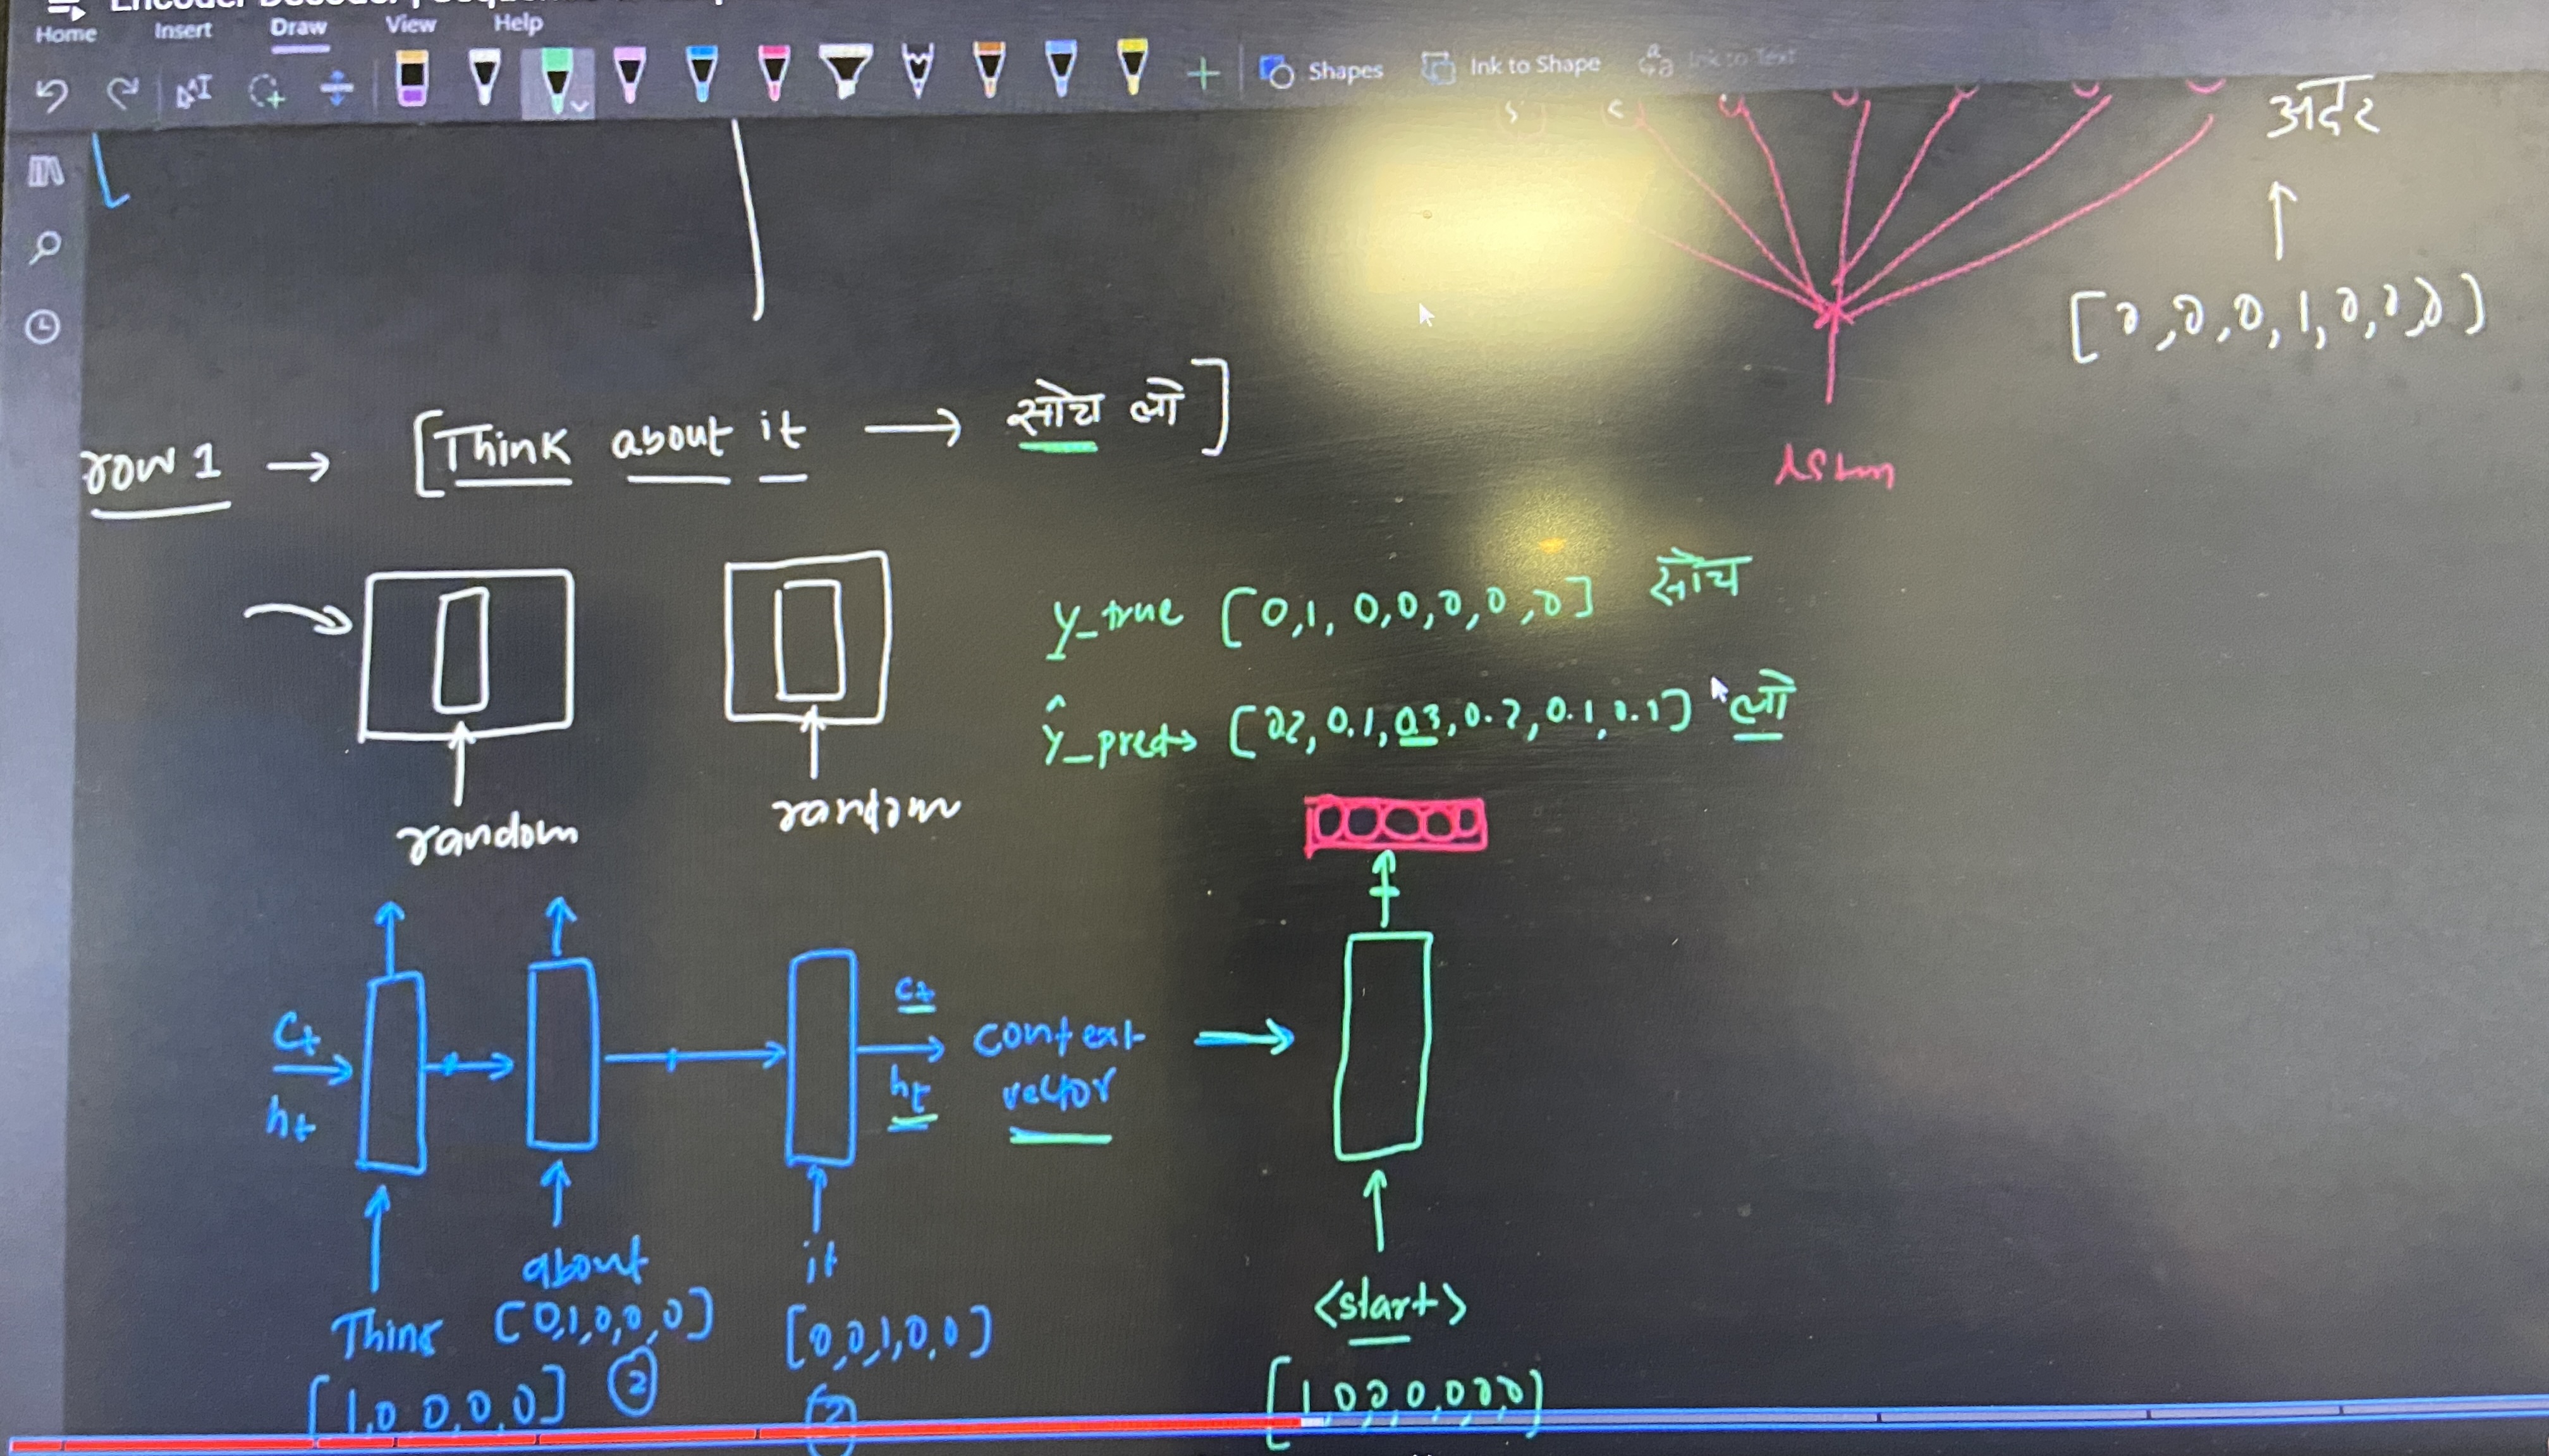 Home Insert Draw View Help
Shapes Ink to Shape Ink to Text
अंदर
[0,0,0,1,0,0,0]
row 1 → [Think about it → सोच लो]
LSTM
y_true [0,1,0,0,0,0,0] सोच
ŷ_pred → [0.2, 0.1, 0.3, 0.2, 0.1, 0.1] लो
random
random
ct
ht
ct
ht
context
vector
Think
[1,0,0,0,0]
about
[0,1,0,0,0]
2
it
[0,0,1,0,0]
<start>
[1,0,0,0,0,0,0]